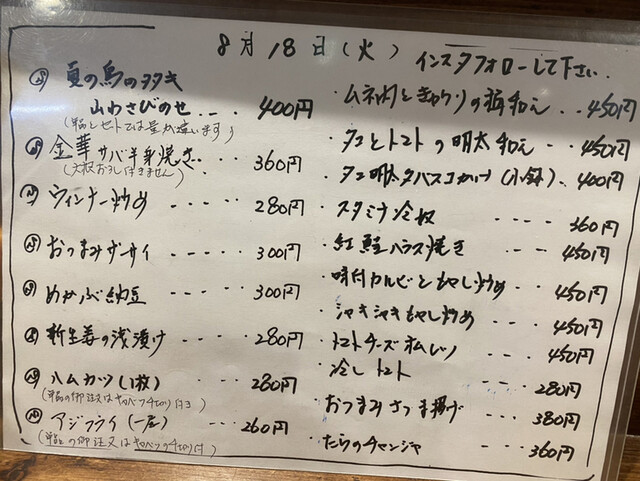 8月18日(火)
インスタフォローして下さい
夏の鳥のタタキ
山わさびのせ... 400円
(単品とセットでは量が違います)
金華サバ半身焼き.. 360円
(大根おろし付きません)
ウィンナー炒め ---- 280円
おつまみザーサイ ---- 300円
めかぶ納豆 ---- 300円
新生姜の浅漬け ---- 280円
ハムカツ(1枚) --- 280円
(単品の御注文はキャベツ千切り付き)
アジフライ(一尾) --- 260円
(単品の御注文はキャベツの千切り付)
・ムネ肉ときゅうりの梅和え. 450円
・タコとトマトの明太和え --- 450円
・タコ明太タバスコがけ(小鉢). 400円
・スタミナ冷奴 ---- 360円
・紅鮭ハラス焼き ---- 450円
・味付カルビともやし炒め ---- 450円
・シャキシャキもやし炒め ---- 450円
・トマトチーズ
・冷しトマト ---- 280円
・おつまみさつま揚げ ---- 380円
・たらのチャンジャ ---- 360円